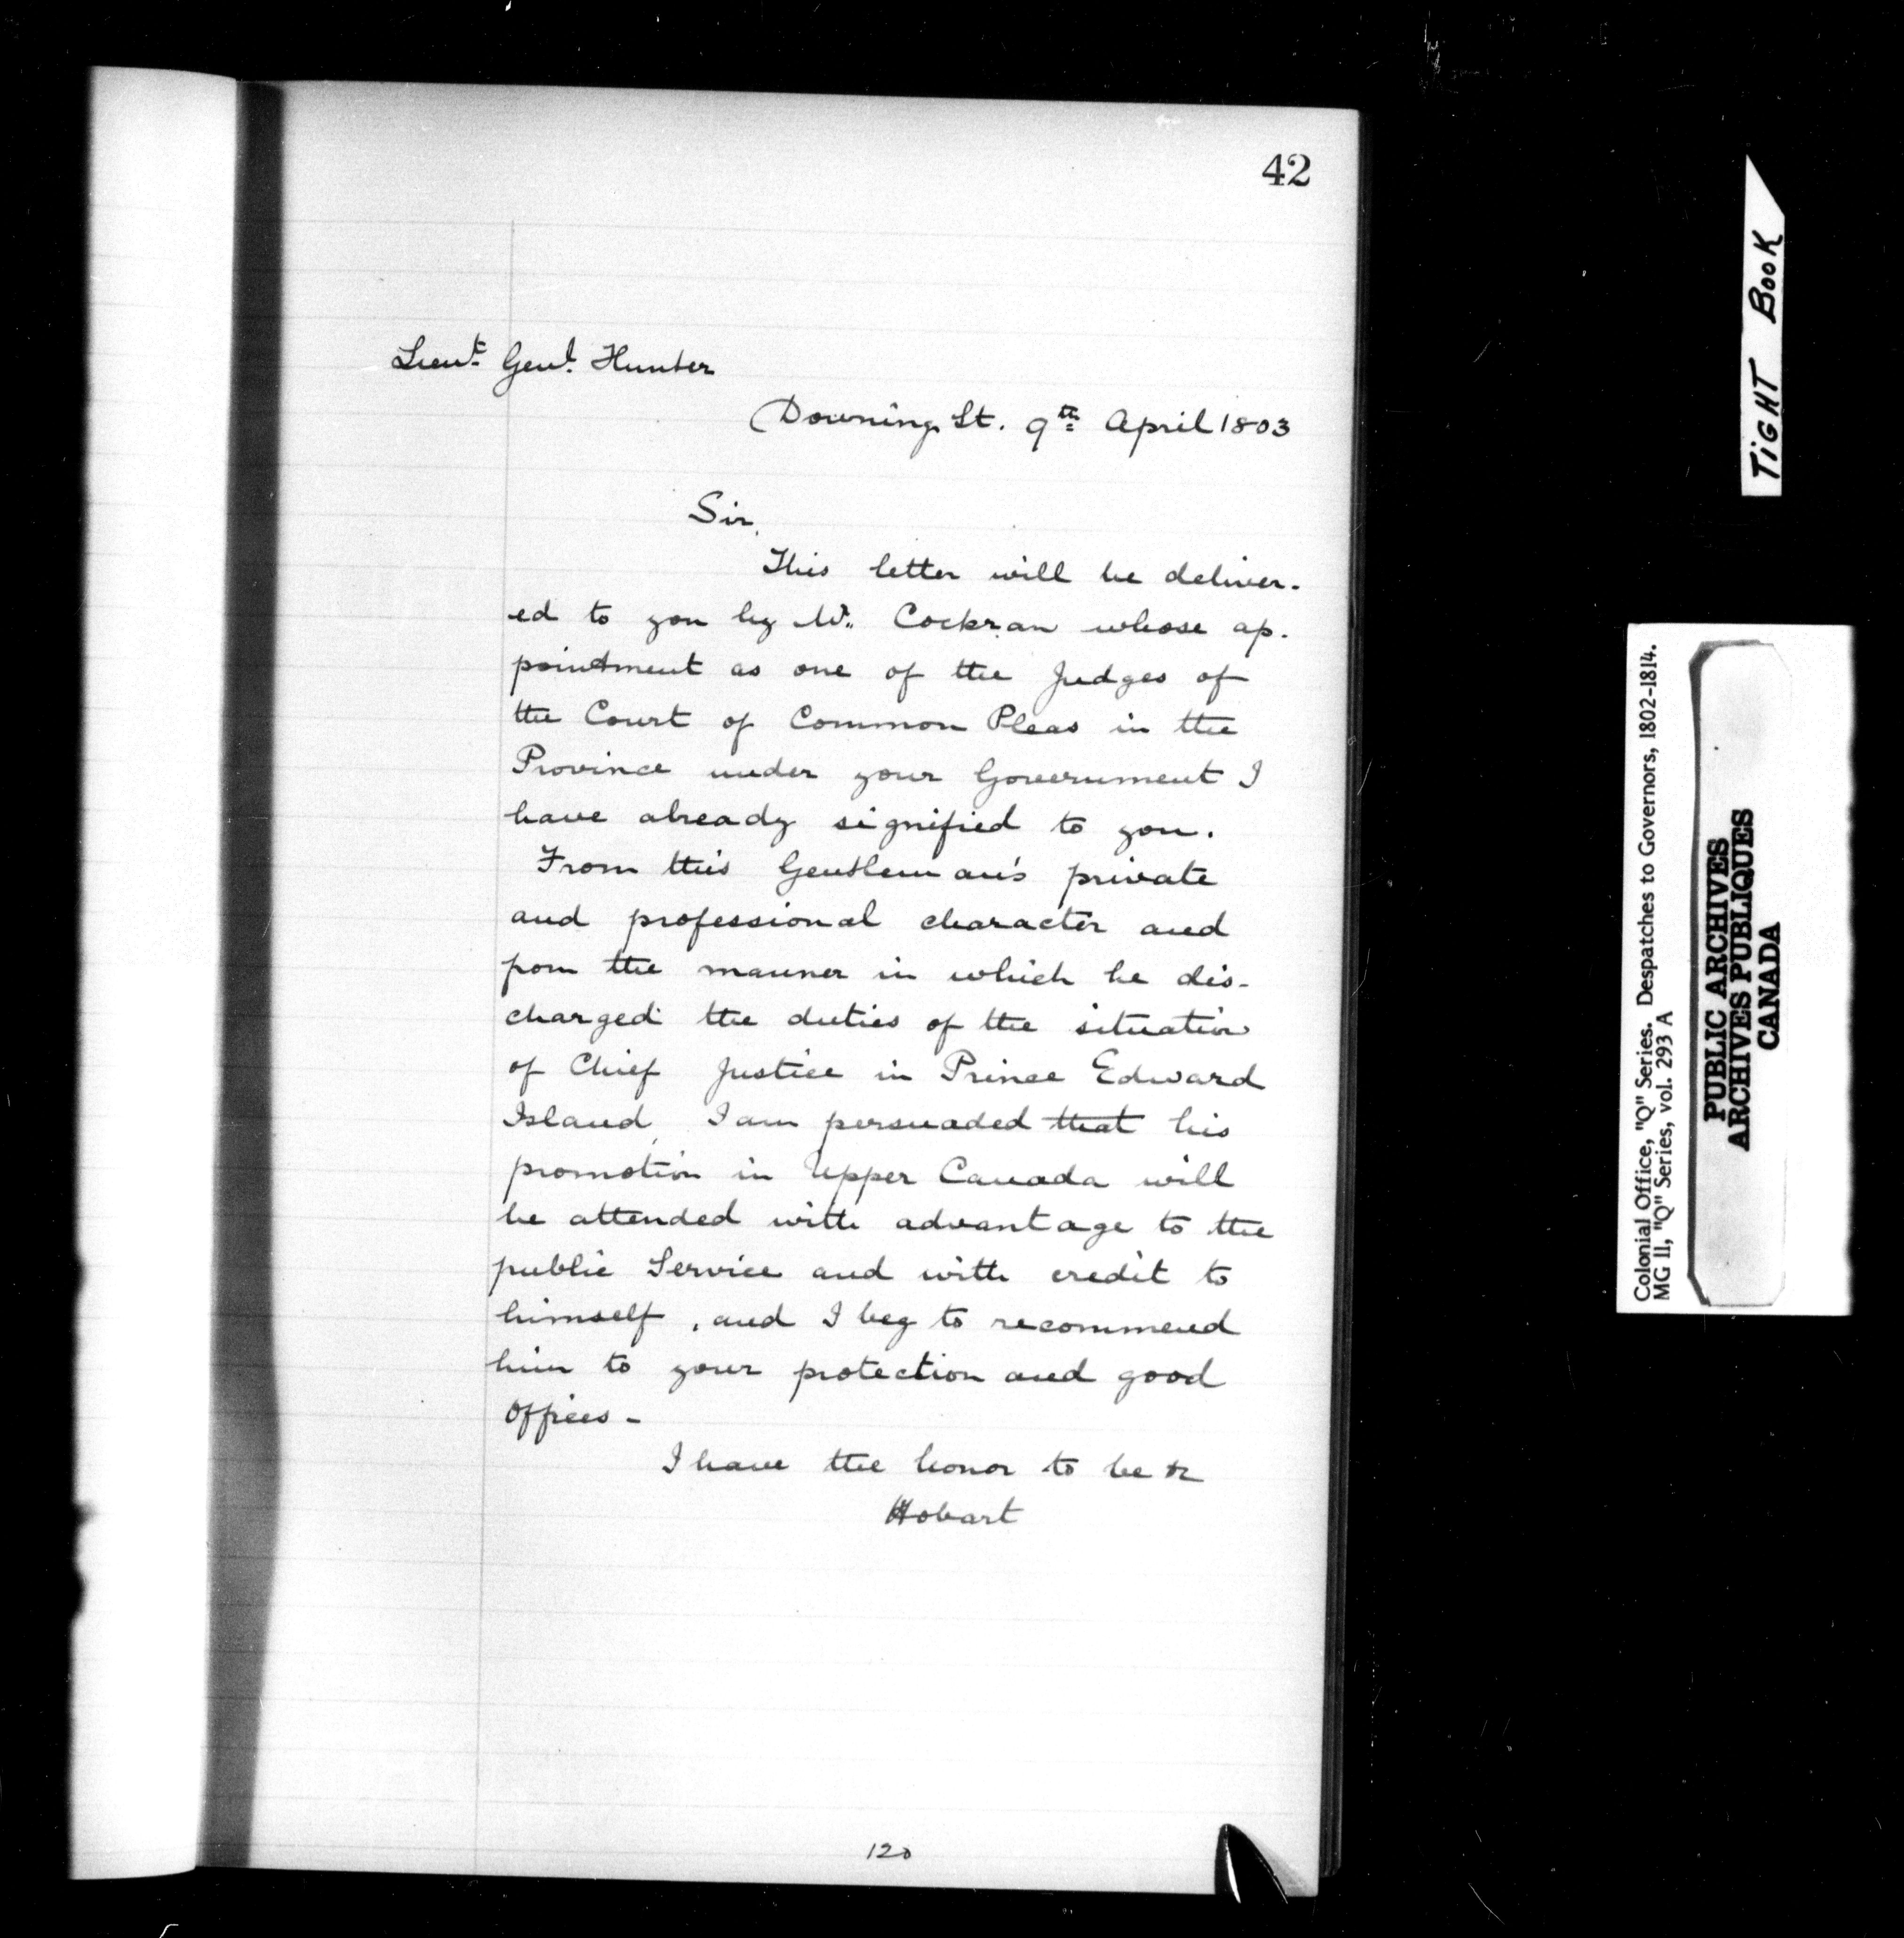 42
Lieut. Genl. Hunter
Downing St. 9th April 1803
Sir,
This letter will be deliver-
ed to you by Mr. Cockran whose ap-
pointment as one of the Judges of
the Court of Common Pleas in the
Province under your Government I
have already signified to you.
From this Gentleman's private
and professional character and
from the manner in which he dis-
charged the duties of the situation
of Chief Justice in Prince Edward
Island, I am persuaded that his
promotion in Upper Canada will
be attended with advantage to the
public Service and with credit to
himself, and I beg to recommend
him to your protection and good
offices -
I have the honor to be &
Hobart
120
TIGHT BOOK
Colonial Office, "Q" Series. Despatches to Governors, 1802-1814.
MG 11, "Q" Series, vol. 293 A
PUBLIC ARCHIVES
ARCHIVES PUBLIQUES
CANADA